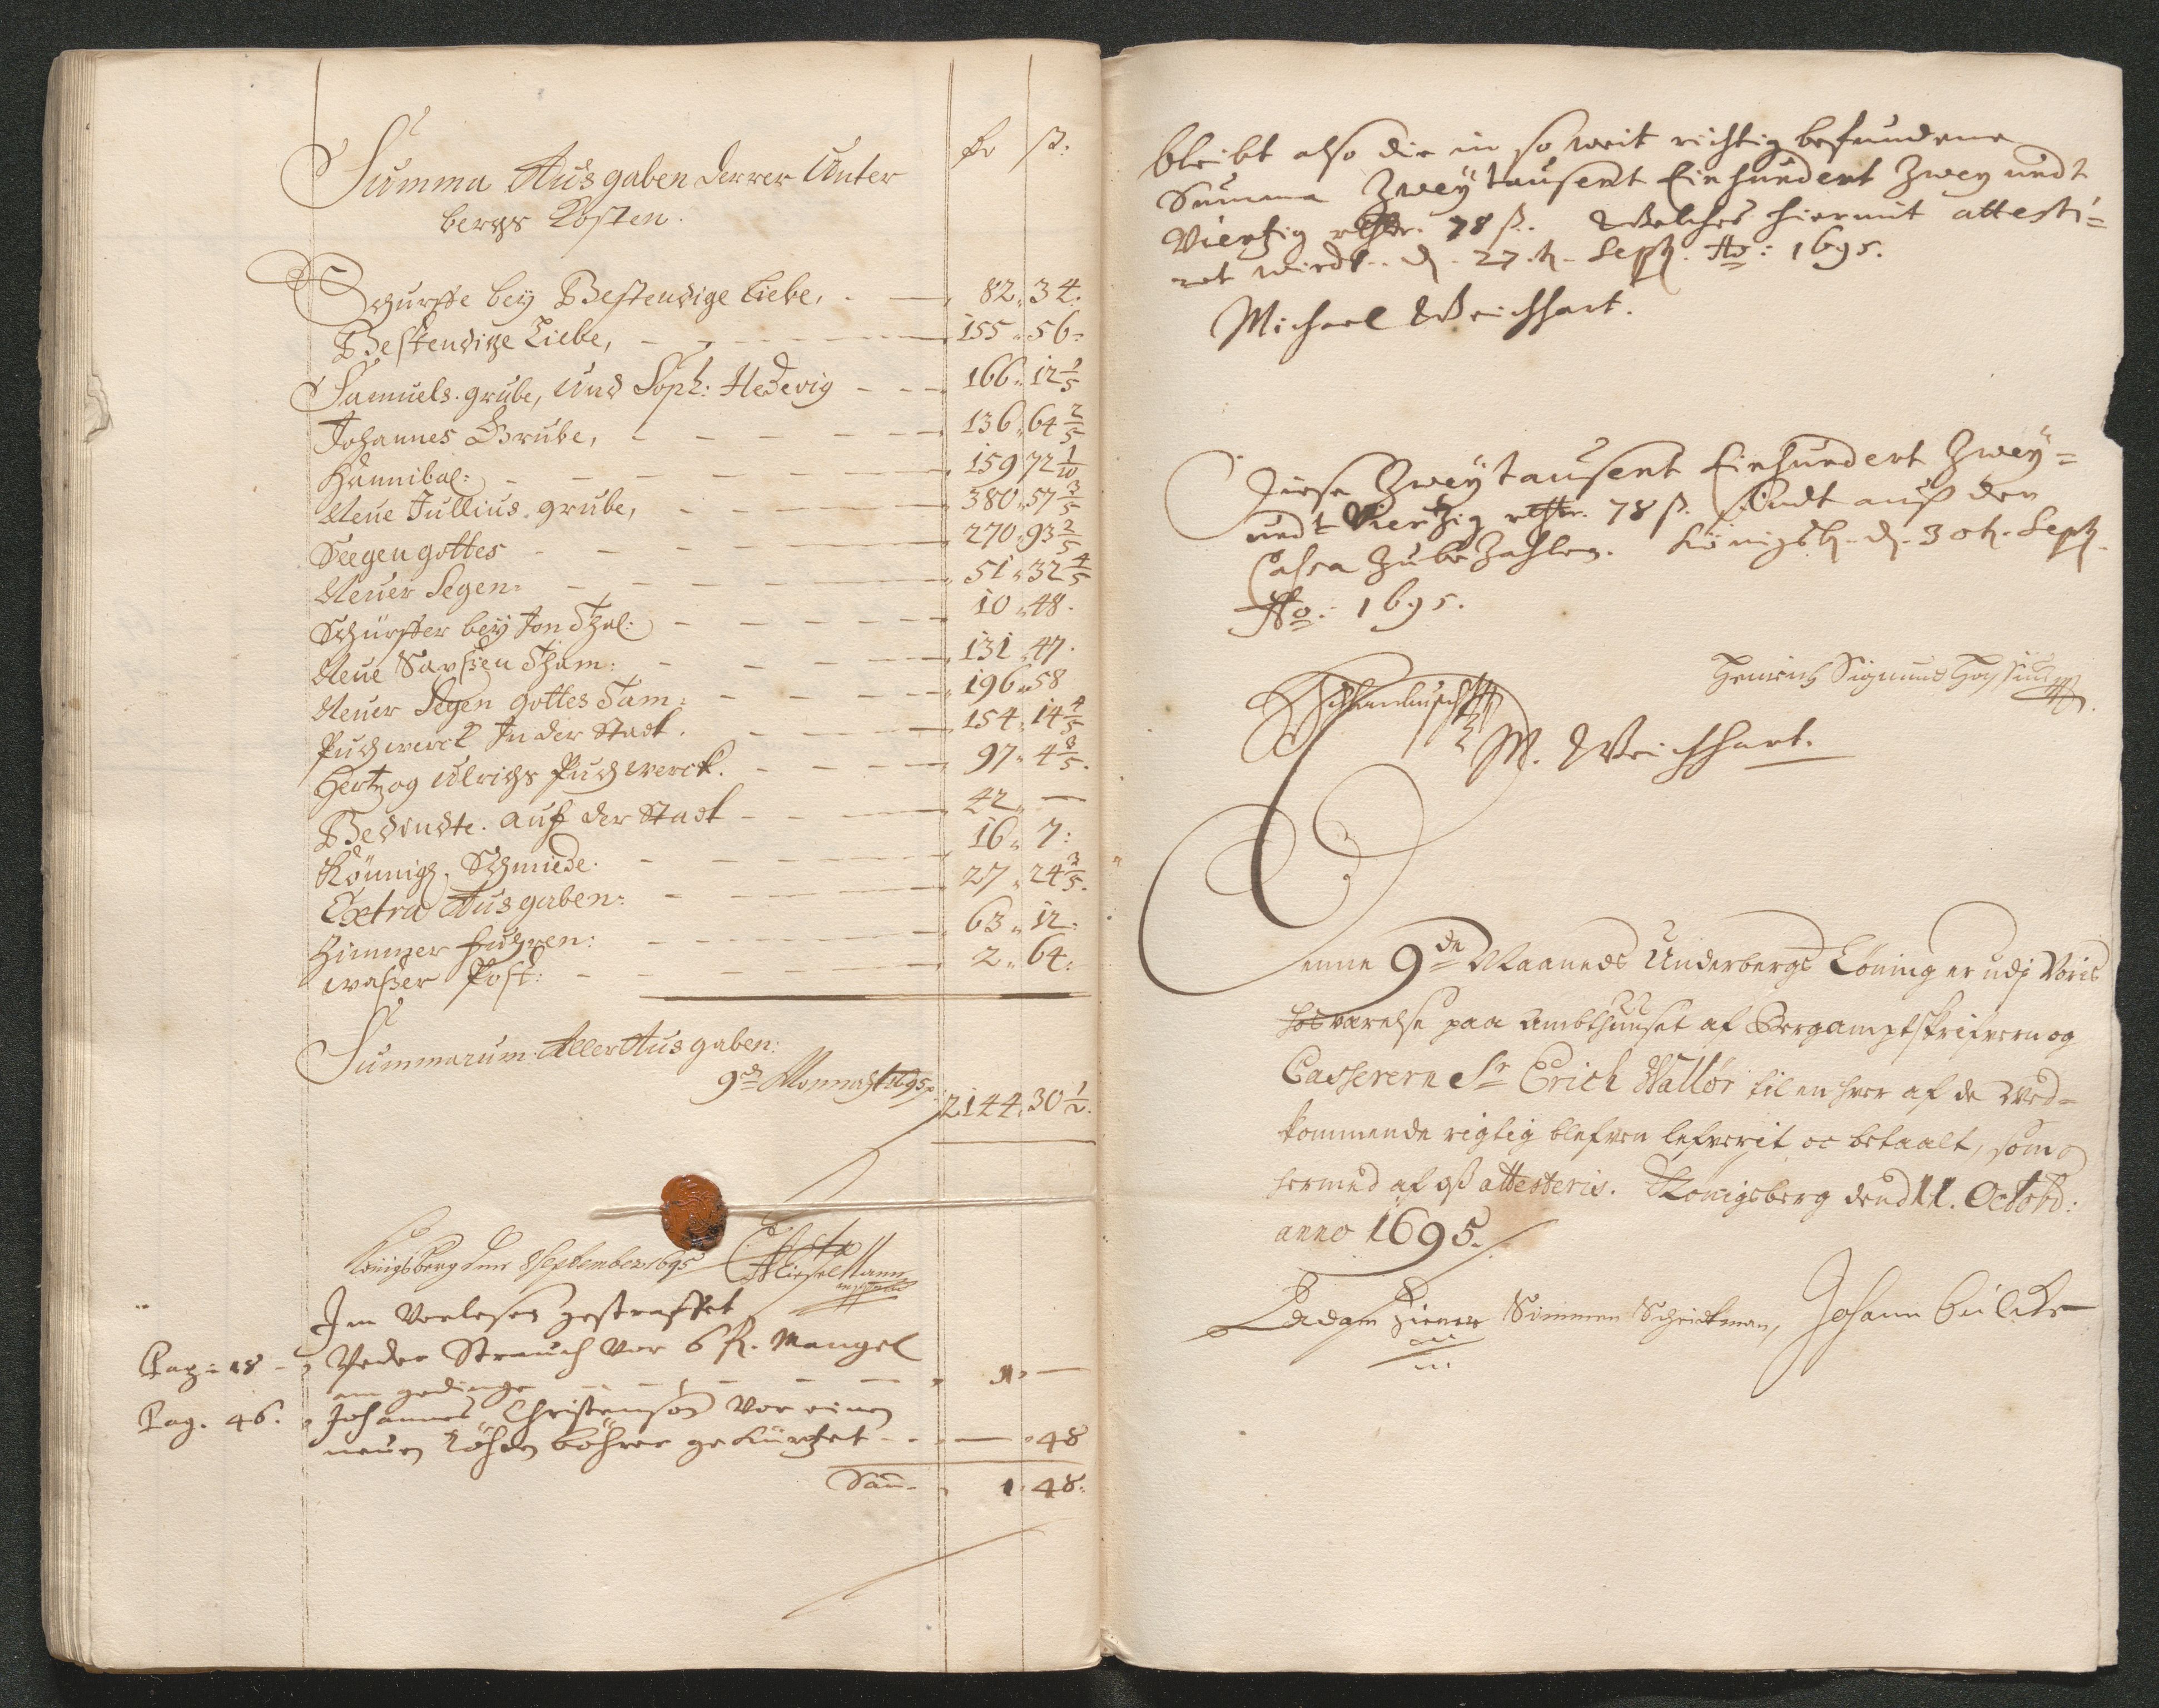 Summa Ausgaben derrer Unter
bergs Kosten.
Schurffe bey Bestendige Liebe, 82. 34.
Bestendige Liebe, 155. 56.
Samuels. grube, und Soph: Hedevig 166. 12 2/5
Johannes Grube, 136. 64 2/5
Hannibal: 159 72 1/10
Neue Jullius. grube, 380. 57 3/5
Seegen gottes 270. 93 2/5
Neuer Segen. 51. 32 4/5
Schürffer bey Jon Thal: 10. 48.
Neue Sachsen Tham: 131. 47.
Neuer Segen gottes Tam: 196. 58
Puchwerck In der Stadt. 154. 14 4/5
Hertzog Ulrichs Puchwerck. 97. 4 3/5.
Bedindte. auf der Stadt 42. —
Könnigl. Schmiede. 16. 7:
Extra Ausgaben: 27. 24 3/5.
Zimmer fuhren: 63. 12.
wasser Post: 2. 64.
Summarum Aller Ausgaben:
9de Monnaht 1695. 2144. 30 1/2.
Königsberg den September 1695
Im Verlesen gestraffet
Pag: 18 Peder Strauch vor 6 ß. Mangel
am gedinge 1. —
Pag. 46. Johannes Christensen vor einen
neuen bohrer gekürtzet — 48
Sum. 1. 48.
bleibt also die in so weit richtig befundene
Summa Zweytausent Einhundert Zwey undt
Viertzig rthr. 78 ß. Welches hiermit attesti=
ret wirdt. d. 27. t. Sept. Ao: 1695.
Michael Weichhart.
Diese Zweytausent Einhundert Zwey=
undt Viertzig rthr. 78 ß. sindt auß der
Cassa zu bezahlen. Königsb. d. 30 t. Sept.
Ao: 1695.
Henrich Sigmund
M. Weichhart.
Denne 9de Maaneds Underbergs Löning er udj Voris
hosværelse paa Ambthuuset af Bergamptskrifveren og
Casserern Sr Erich til en hver af de Ved=
kommende rigtig blefven lefverit oc betaalt, som
hermed af oß attesteris. Kongsberg dend 11. Octobr:
anno 1695.
Simmen Johann